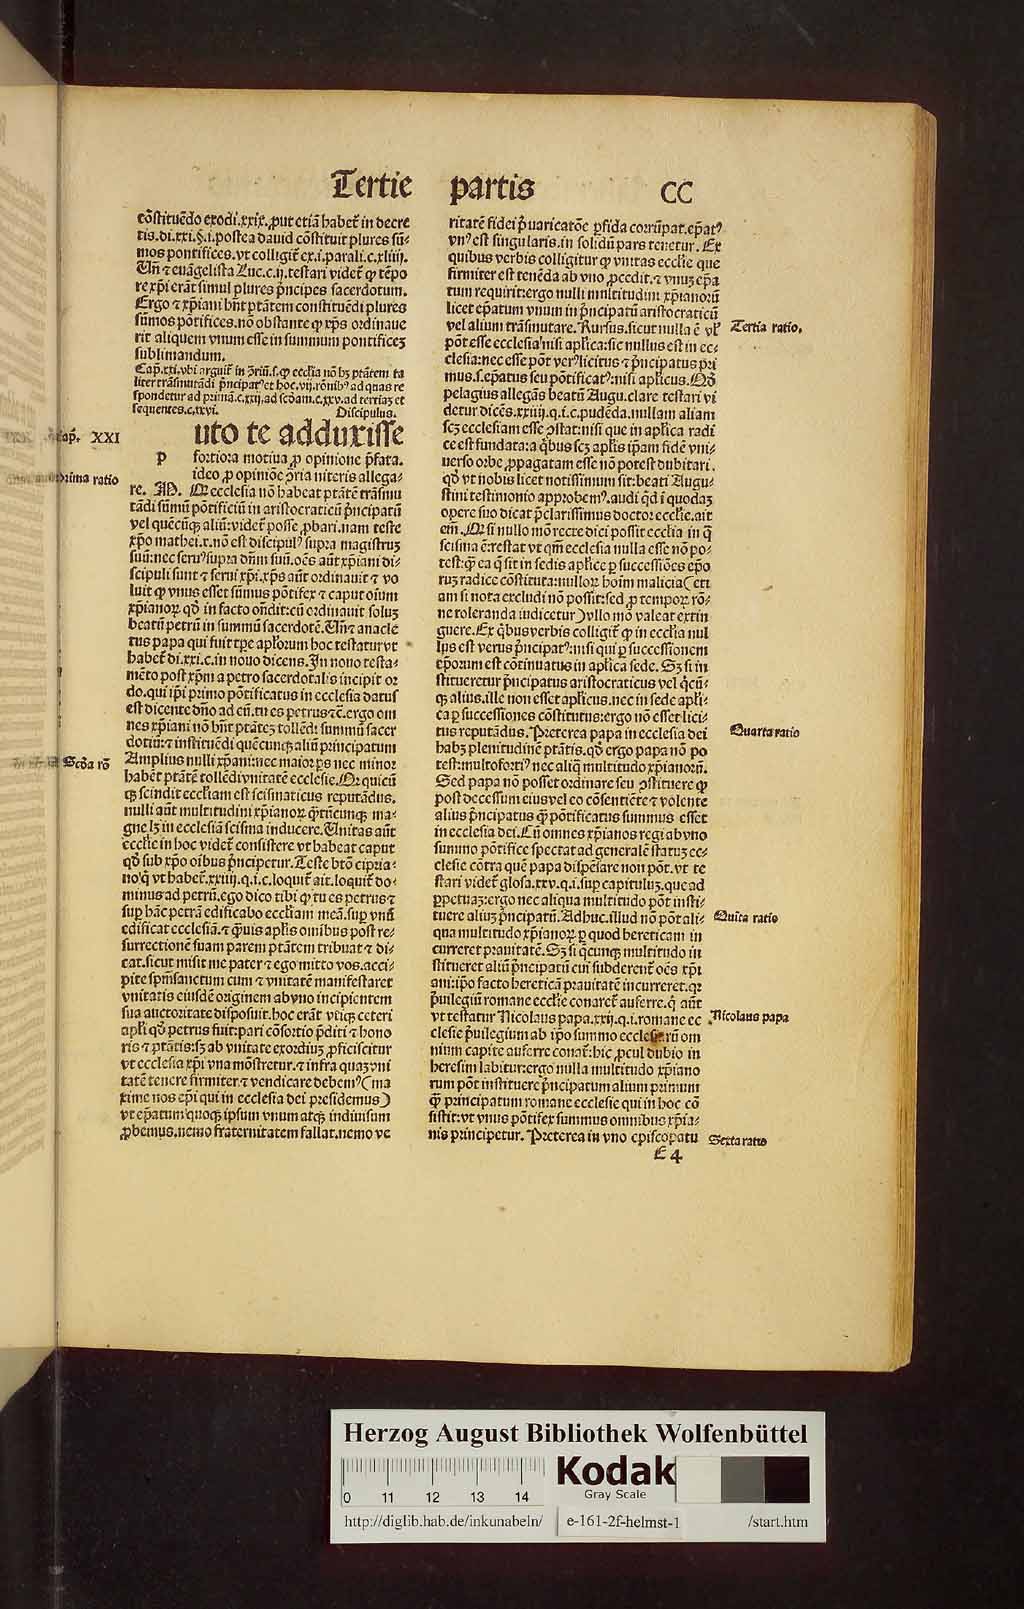 Tertie partis CC
cōstituēdo exodi.xxix.ꝓut etiā habet̄ in decre
tis.di.xxi.§.i.postea dauid cōstituit plures sū⸗
mos pontifices.vt colligit̄ ex.i.parali.c.xliiij.
Uñ ⁊ euāgelista Luc.c.ij.testari videt̄ ꝙ tēpo
re xp̄i erāt simul plures p̄ncipes sacerdotum.
Ergo ⁊ xp̄iani bn̄t ptātem constituēdi plures
sūmos pōtifices.nō obstante ꝙ xp̄s ordinaue
rit aliquem vnum esse in summum pontificeꝫ
sublimandum.
Cap̄.xxi.vbi arguit̄ in ꝯriū.s.ꝙ ecclīa nō hꝫ ptātem ta
liter trāsmutādi p̄ncipatꝰ et hoc.vij.rōnibꝰ ad quas re
spondetur ad primā.c.xxij.ad scōam.c.xxv.ad tertiaꝫ et
sequentes.c.xxvi. Discipulus.
Cap̄. XXI
puto te adduxisse
fortiora motiua ꝓ opinione p̄fata.
ideo ꝓ opiniōe ꝯria niteris allega⸗
prima ratio
re. M. Qꝛ ecclesia nō habeat ptātē trāsmu
tādi sūmū pōtificiū in aristocraticū p̄ncipatū
vel quēcūqꝫ aliū:videt̄ posse ꝓbari.nam teste
xp̄o mathei.x.nō est discipulꝰ supra magistruꝫ
suū:nec seruꝰ supra dn̄m suū.oēs aūt xp̄iani di⸗
scipuli sunt ⁊ serui xp̄i.xp̄s aūt ordinauit ⁊ vo
luit ꝙ vnus esset sūmus pōtifex ⁊ caput oīum
xp̄ianoꝝ qď in facto on̄dit:cū ordinauit soluꝫ
beatū petrū in summū sacerdotē.Uñ ⁊ anacle
tus papa qui fuit tp̄e apl̄oꝝum hoc testatur vt
habet̄ di.xxi.c.in nouo dicens.In nouo testa⸗
mēto post xp̄m a petro sacerdotalis incipit or
do.qui ip̄i primo pōtificatus in ecclesia datus
est dicente dn̄o ad eū.tu es petrus ⁊c̄.ergo om
nes xp̄iani nō hn̄t ptāteꝫ tollēdi summū sacer
dotiū:⁊ instituēdi quēcunqꝫ aliū principatum
Scōa rō
Amplius nulli xp̄ani:nec maior ps nec minor
habēt ptātē tollēdi vnitatē ecclesie.Qꝛ quicū
qꝫ scindit eccl̄iam est scismaticus reputādus.
nulli aūt multitudini xp̄ianoꝝ q̄ntūcunqꝫ ma⸗
gne lꝫ in ecclesiā scisma inducere.Unitas aūt
eccl̄ie in hoc videt̄ consistere vt habeat caput
qď sub xp̄o oībus p̄ncipetur.Teste bt̄o cipria⸗
no'q̄ vt habet̄.xxiiij.q.i.c.loquit̄ ait.loquit̄ do⸗
minus ad petrū.ego dico tibi ꝙ tu es petrus ⁊
suꝑ hāc petrā edificabo eccl̄iam meā.suꝑ vnū
edificat ecclesiā.⁊ q̄uis apl̄is omibus post re⸗
surrectionē suam parem ptātem tribuat ⁊ di⸗
cat.sicut misit me pater ⁊ ego mitto vos.acci⸗
pite spm̄sanctum cum ⁊ vnitatē manifestaret
vnitatis eiusdē originem ab vno incipientem
sua auctoritate disposuit.hoc erāt vtiqꝫ ceteri
apl̄i qď petrus fuit:pari cōsortio p̄diti ⁊ hono
ris ⁊ ptātis:sꝫ ab vnitate exordiuꝫ ꝓficiscitur
vt ecclesia xp̄i vna mōstretur.⁊ infra quaꝫ vni
tatē tenere firmiter ⁊ vendicare debemꝰ(ma
xime nos ep̄i qui in ecclesia dei presidemus)
vt ep̄atum quoqꝫ ipsum vnum atqꝫ indiuisum
ꝓbemus.nemo fraternitatem fallat.nemo ve
ritatē fidei p̄uaricatōe ꝑfida corrūpat.ep̄atꝰ
vnꝰ est singularis.in solidū pars tenetur. Ex
quibus verbis colligitur ꝙ vnitas eccl̄ie que
firmiter est tenēda ab vno ꝓcedit.⁊ vnuꝫ ep̄a
tum requirit:ergo nulli multitudini xp̄ianorū
licet ep̄atum vnum in p̄ncipatū aristocraticū
Tertia ratio.
vel alium trāsmutare.Rursus.sicut nulla ē vl̓
pōt esse ecclesia'nisi apl̄ica:sic nullus est in ec⸗
clesia:nec esse pōt verꝰ licitus ⁊ p̄ncipatus pri
mus.s.ep̄atus seu pōtificatꝰ:nisi apl̄icus.Qď
pelagius allegās beatū Augu.clare testari vi
detur dicēs.xxiiij.q.i.c.pudēda.nullam aliam
scꝫ ecclesiam esse ꝯstat:nisi que in apl̄ica radi
ce est fundata:a q̄bus scꝫ apl̄is ip̄am fidē vni⸗
uerso orbe ꝓpagatam esse nō potest dubitari.
qď vt nobis licet notissimum sit:beati Augu⸗
stini testimonio approbemꝰ.audi q̄d ī quodaꝫ
opere suo dicat p̄clarissimus doctor eccl̄ie.ait
em̄.Qꝛ si nullo mō recte dici possit ecclīa in q̄
scisma ē:restat vt qm̄ ecclesia nulla esse nō po⸗
test:q̄ ea q̄ sit in sedis apl̄ice ꝑ successiōes ep̄o
ruꝫ radice cōstituta:nulloꝝ hoīm malicia(eti
am si nota excludi nō possit:sed ꝓ tempoꝝ rō⸗
ne toleranda iudicetur)vllo mō valeat extin
guere.Ex q̄bus verbis colligit̄ ꝙ in ecclīa nul
lus est verus p̄ncipatꝰ:nisi qui ꝑ successionem
ep̄orum est cōtinuatus in apl̄ica sede. Sꝫ si in
stitueretur p̄ncipatus aristocraticus vel q̄cū⸗
qꝫ alius.ille non esset apl̄icus.nec in sede apl̄i⸗
ca ꝑ successiones cōstitutus:ergo nō esset lici⸗
Quarta ratio
tus reputādus. Preterea papa in ecclesia dei
habꝫ plenitudinē ptātis.qď ergo papa nō po
test:multofortiꝰ nec aliq̄ multitudo xp̄ianorū.
Sed papa nō posset ordinare seu ꝯstituere ꝙ
post decessum eius vel eo cōsentiēte ⁊ volente
alius p̄ncipatus q̄ pōtificatus summus esset
in ecclesia dei.Cū omnes xp̄ianos regi ab vno
summo pōtifice spectat ad generalē statuꝫ ec⸗
clesie cōtra quē papa dispēsare non pōt.vt te
stari videt̄ glosa.xxv.q.i.suꝑ capituluꝫ.que ad
ꝑpetuaꝫ:ergo nec aliqua multitudo pōt insti⸗
Quīta ratio
tuere aliuꝫ p̄ncipatū.Adhuc.illud nō pōt ali⸗
qua multitudo xp̄ianoꝝ ꝑ quod hereticam in
curreret prauitatē.Sꝫ si q̄cunqꝫ multitudo in
stitueret aliū p̄ncipatū cui subderent̄ oēs xp̄i
ani:ip̄o facto hereticā prauitatē incurreret.qꝛ
p̄uilegiū romane eccl̄ie conaret̄ auferre.q̄ aūt
Nicolaus papa
vt testatur Nicolaus papa.xxij.q.i.romane ec
clesie p̄uilegium ab ip̄o summo ecclesiarū om
nium capite auferre conat̄:hic ꝓcul dubio in
heresim labitur:ergo nulla multitudo xp̄iano
rum pōt instituere p̄ncipatum alium primum
q̄ꝫ principatum romane ecclesie qui in hoc cō
sistit:vt vnus pōtifex summus omnibus xp̄ia⸗
Sexta ratio
nis principetur. Preterea in vno episcopatu
E 4
Herzog August Bibliothek Wolfenbüttel
0 11 12 13 14
Kodak
Gray Scale
http://diglib.hab.de/inkunabeln/ e-161-2f-helmst-1 /start.htm